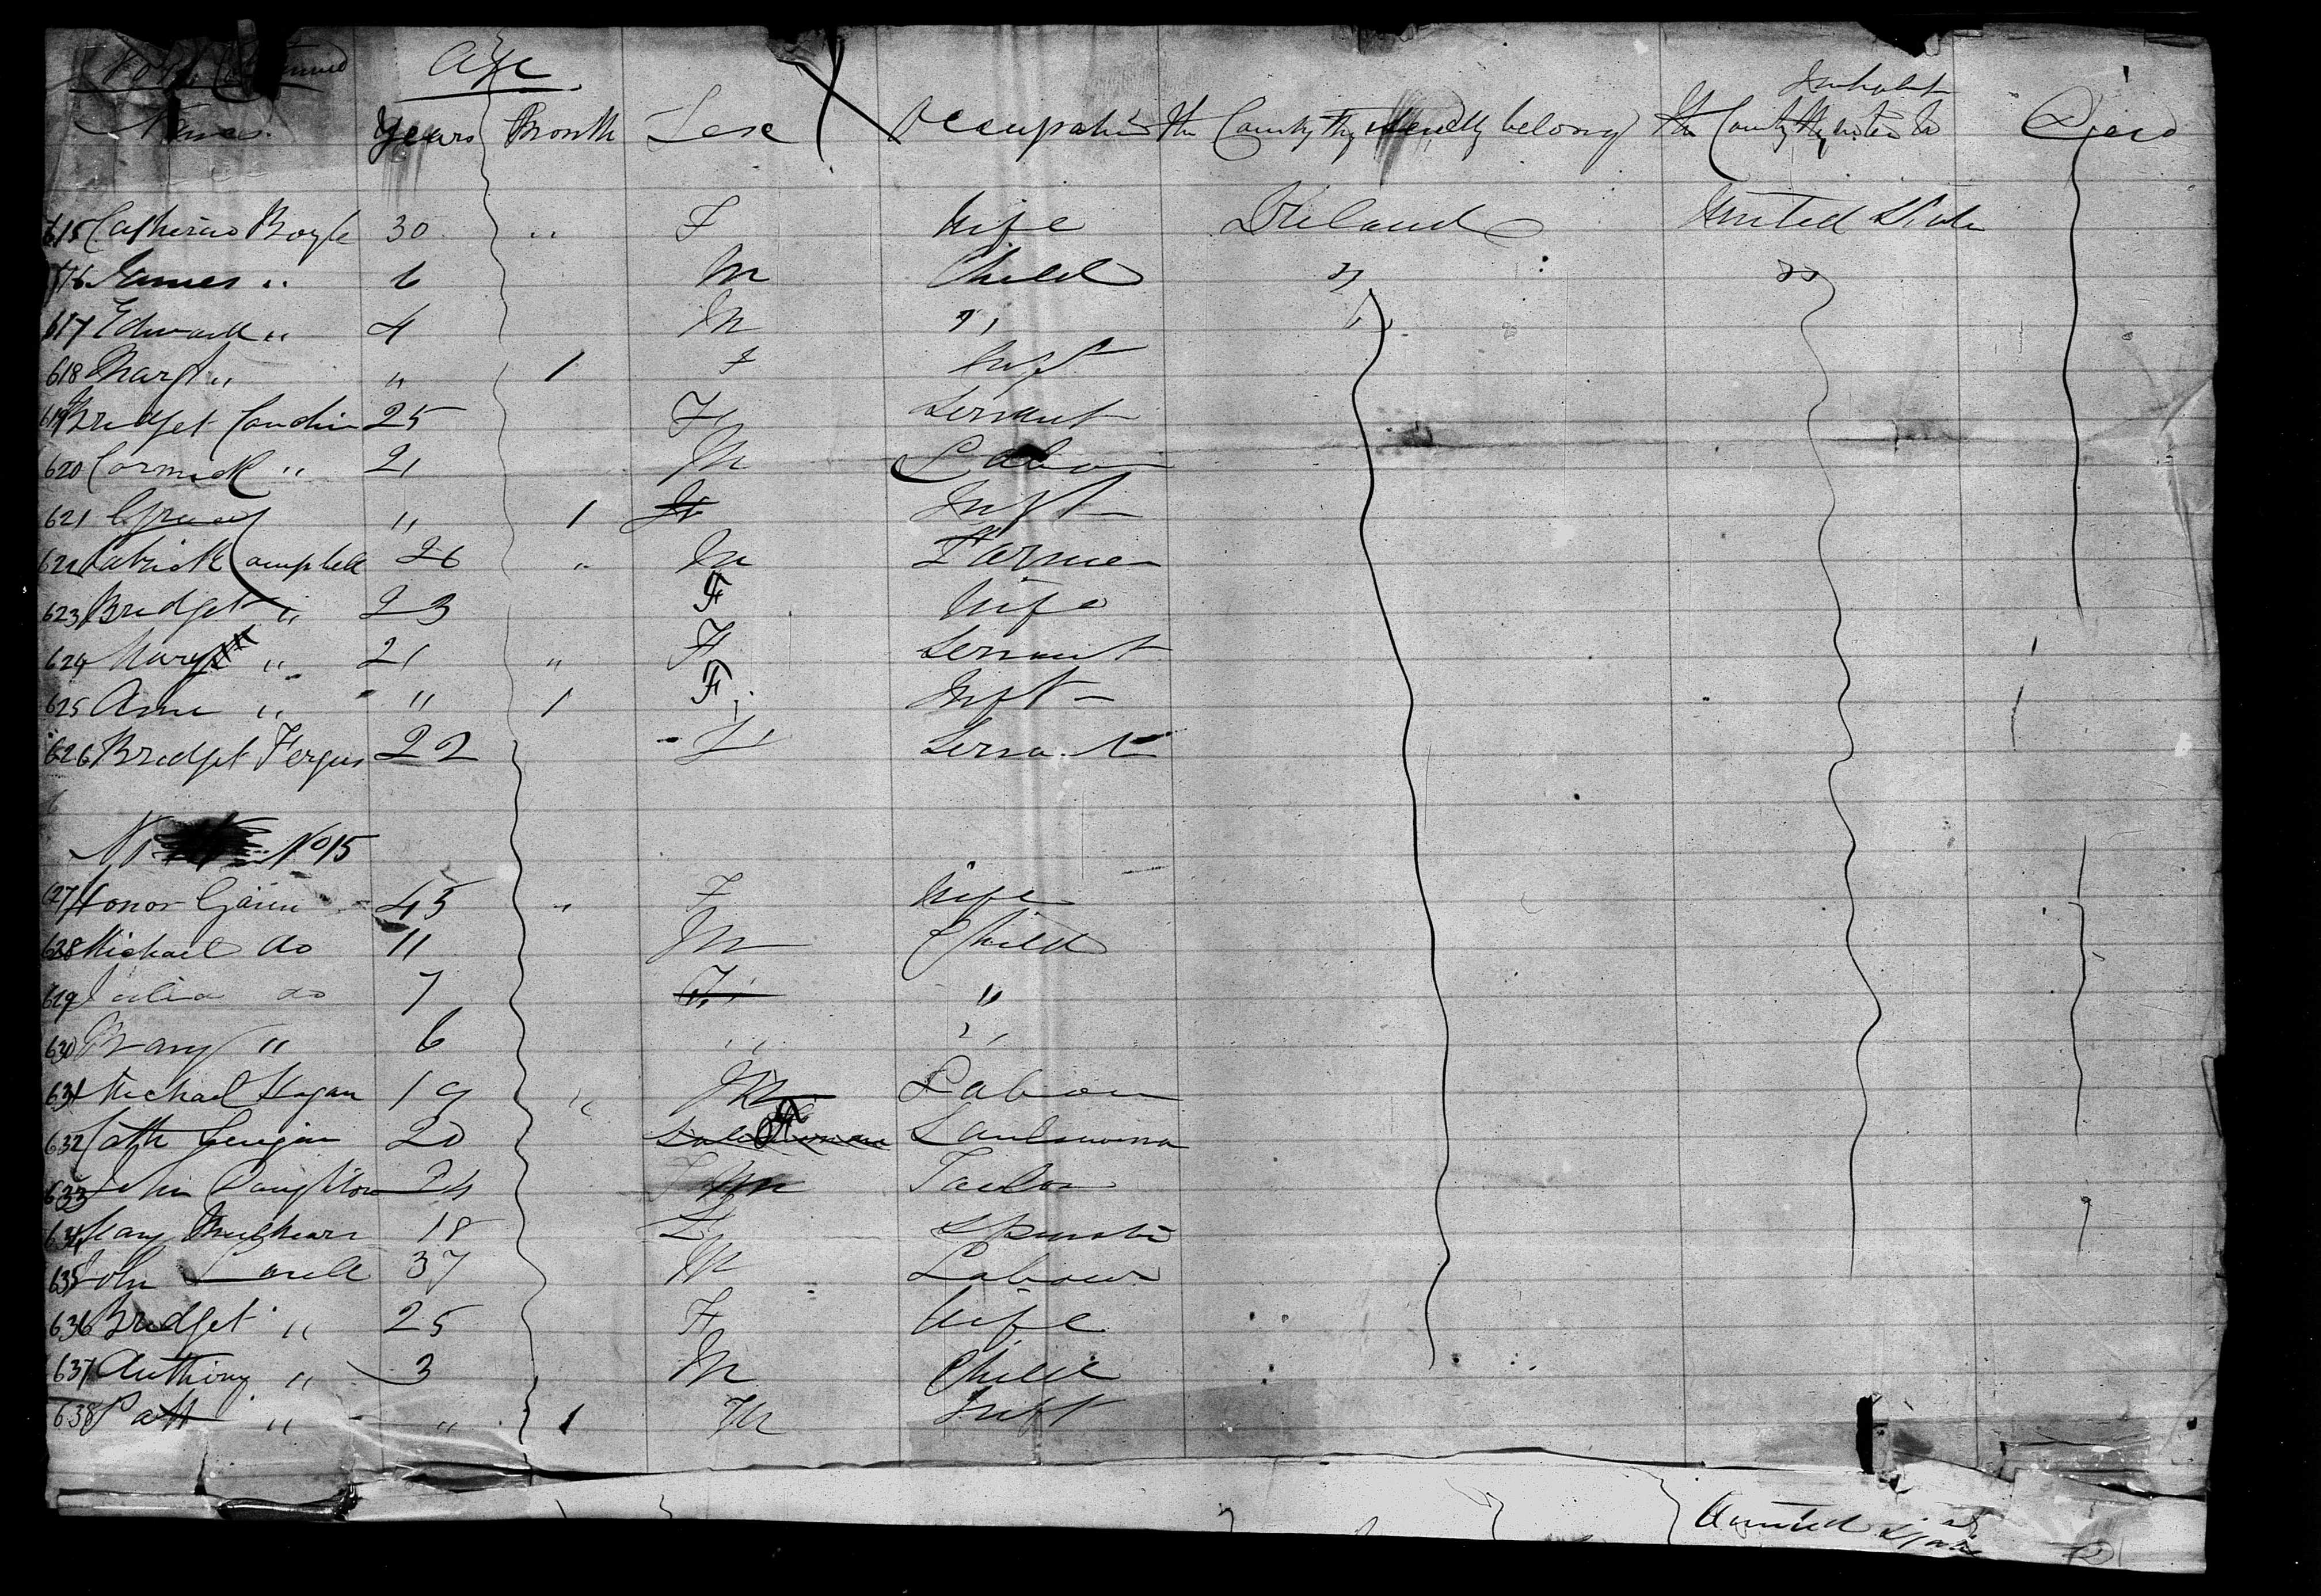 Continued
Age
Names. Years Month Sex Occupation the County they belong the County they Inhabit Died
615 Catherine Boyle 30 " F Wife Ireland United State
616 James " 6 M Child " "
617 Edward " 4 M "
618 Margt " " 1 F Inft
619 Bridget 25 F Servant
620 Cormick " 21 M Labor
621 " 1 Inft
622 Patrick Campbell 26 " M Farmer
623 Bridget " 23 F Wife
624 Mary " 21 " F Servant
625 Ann " " 1 F Inft
626 Bridget Fergus 22 F Servant
No 15
627 Honor 45 " F Wife
628 Michael do 11 M Child
629 Julia do 7 F "
630 Mary " 6 " "
631 Michael 19 " M Labour
632 Cath 20 F
633 John 24 M Tailor
634 Mary 18 F Spinster
635 John 37 M Labour
636 Bridget " 25 F Wife
637 Anthony " 3 M Child
638 Patt " " 1 M Inft
United State